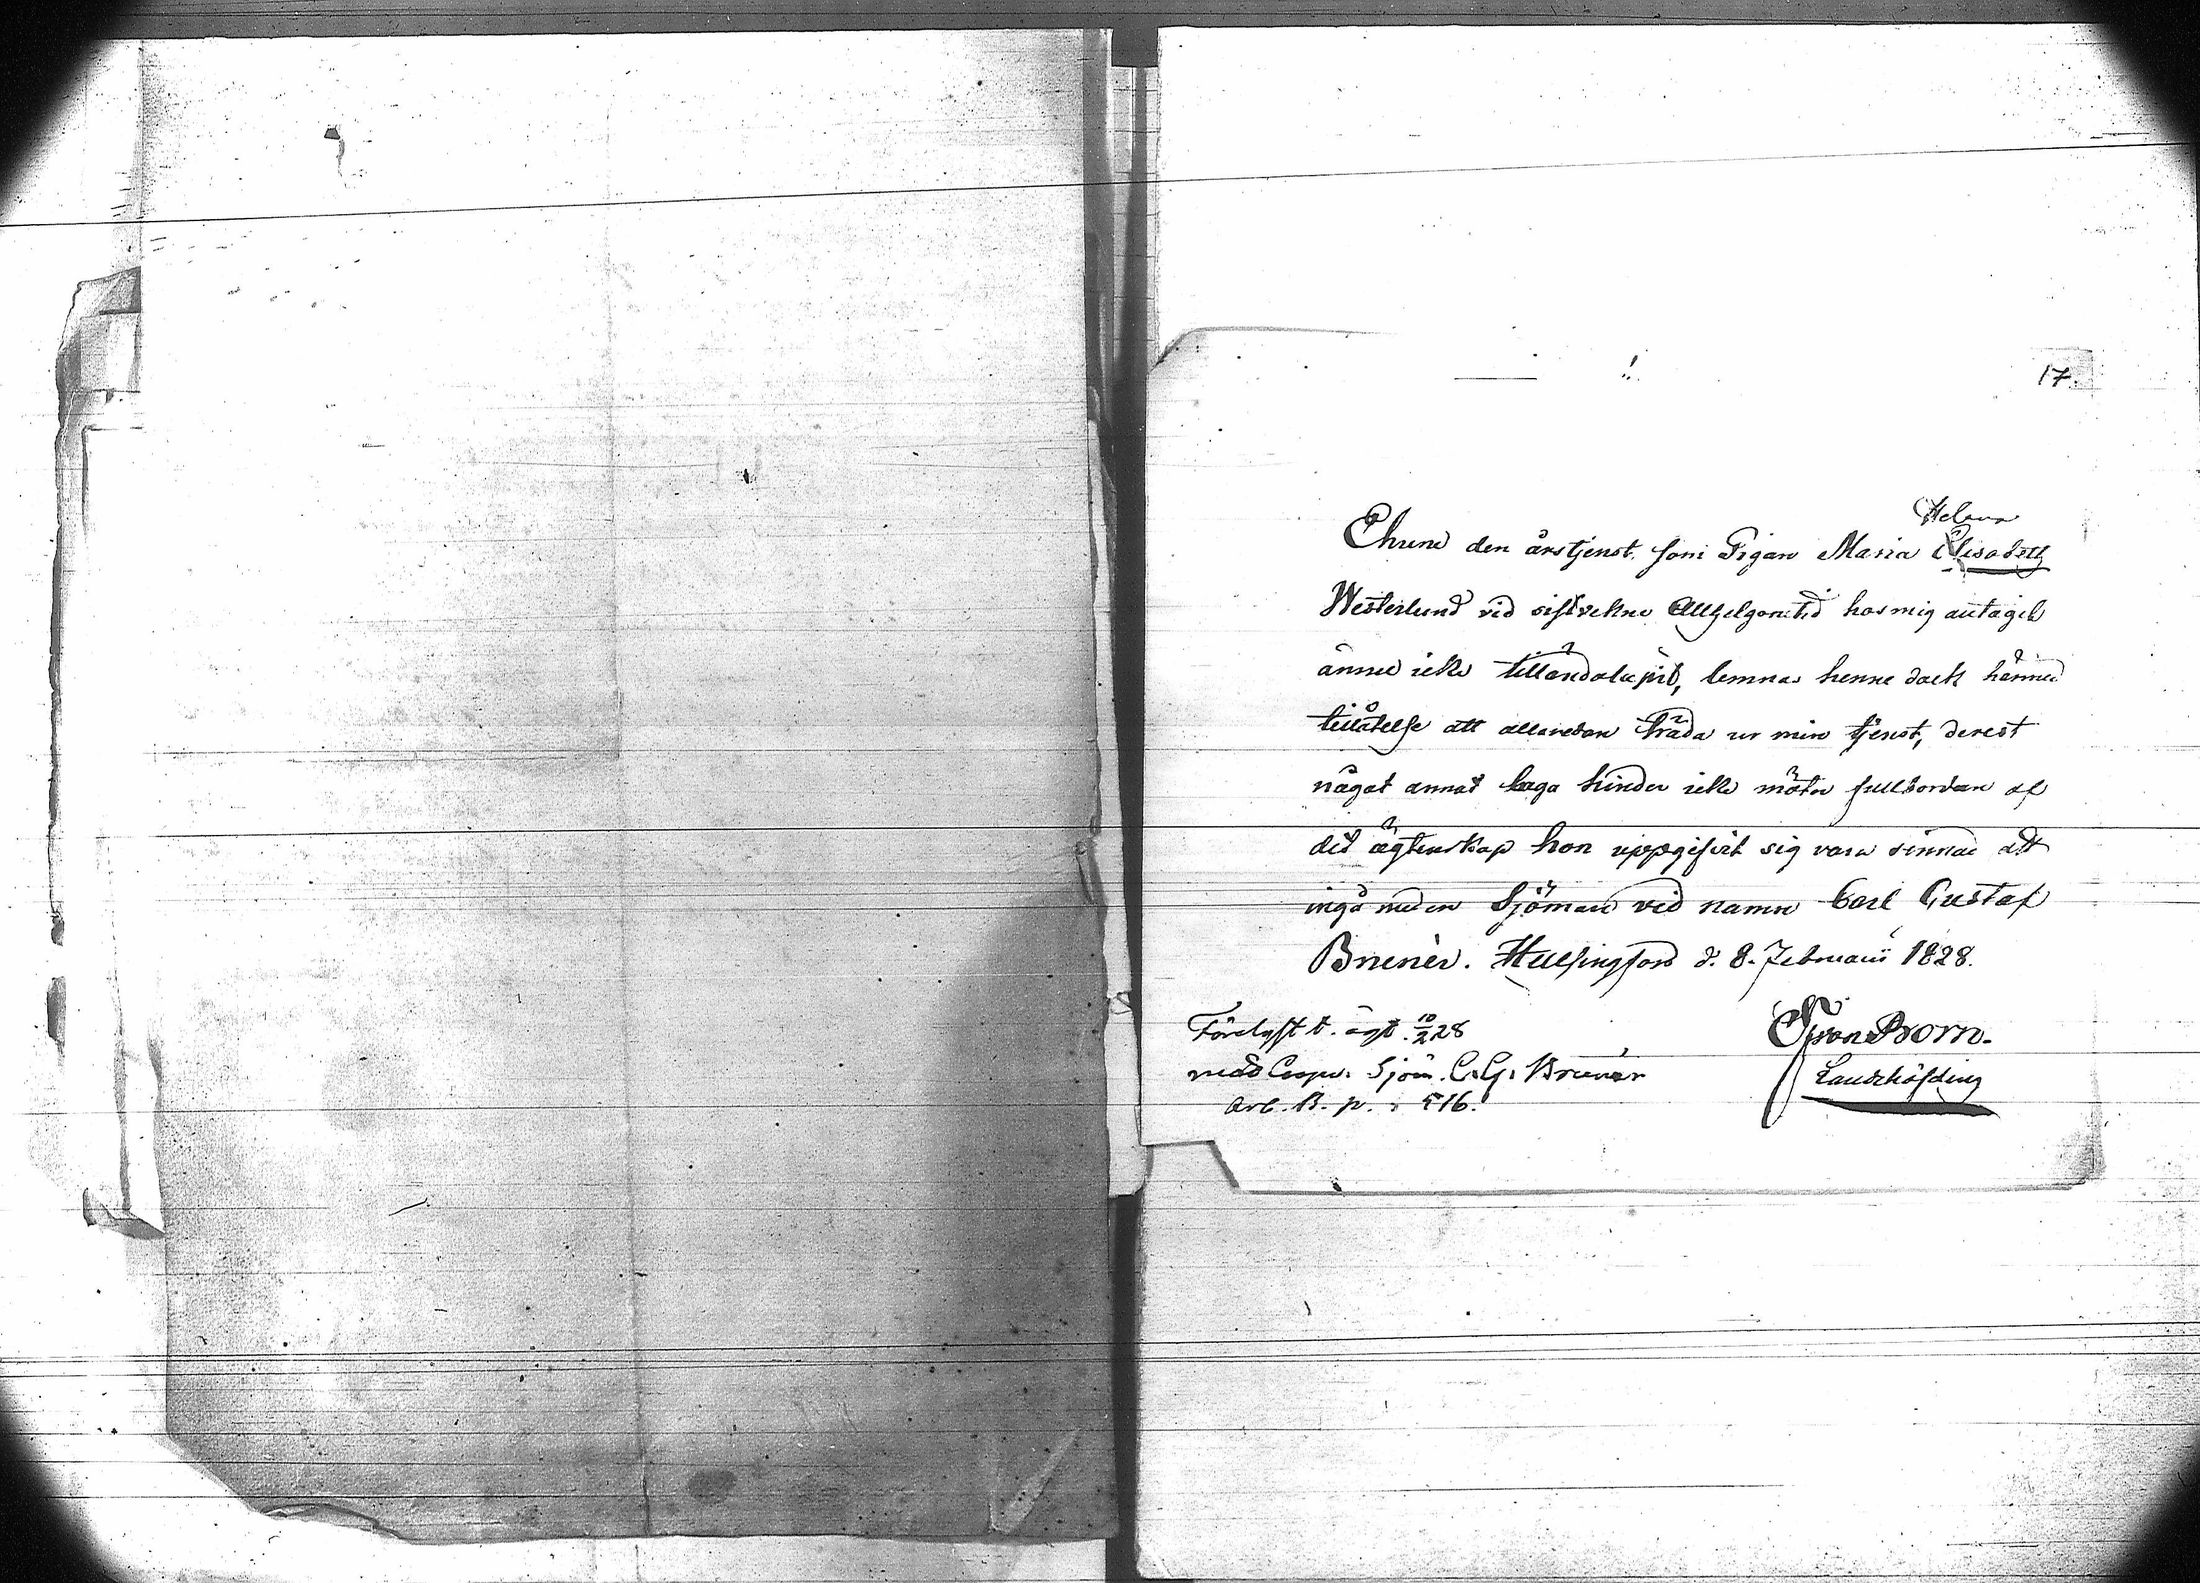 17.
Helena
Ehuru den årstjenst som Pigan Maria Elisabeth
Westerlund vid sistvekne Allhelgonetid hos mig antagit
ännu icke tilländalupit, lemnas henne dock härmed
tillåtelse att allaredan träda ur min tjenst, derest
något annat laga hinder icke möter fullbordan af
det ägtenskap hon uppgifvit sig vara sinnad att
ingå med en Sjöman vid namn Carl Gustaf
Brunér. Helsingfors d. 8. Februarii 1828.
G von Born.
Landshöfding
Förelyst t. ägt. 10/2 28
med Coopv. Sjöm. C. G. Brunér
Arb. B. p. 516.